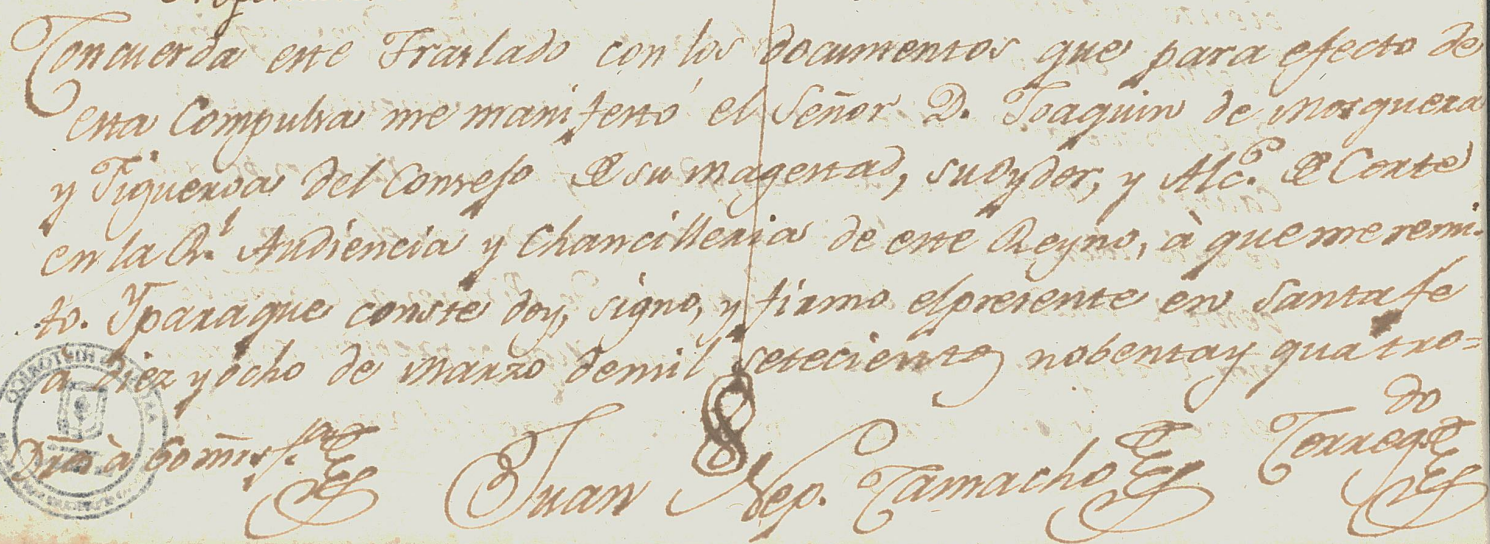 Concuerda este Traslado con los documentos que para efecto de
esta Compulsa me manifestó el Señor D. Joaquin de Mosquera
y Figueroa del Consejo de su magestad, su Oydor, y Alc.e de Corte
en la R.l Audiencia y Chancilleria de este Reyno, à que me remi-
to. Y para que conste doy, signo, y firmo el presente en Santafe
a diez y ocho de Marzo de mil setecientos nobenta y quatro=
Juan Nep. Camacho